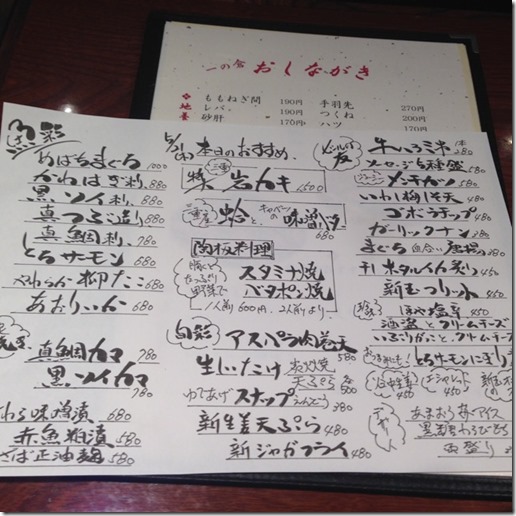 一の倉 おしながき
ももねぎ間 190円 手羽先 270円
レバー 190円 つくね 200円
砂肝 170円 ハツ 170円
本日のおすすめ
めばちまぐろ 1000
かわはぎ刺 880
黒ソイ刺 880
真つぶ造り 880
真鯛刺 780
とろサーモン 680
やわらか柳たこ 680
あおりいか 680
真鯛カマ 780
黒ソイカマ 780
さわら味噌漬 680
赤魚粕漬 580
さば正油麹 580
岩カキ 600
蛤と、キャベツの味噌バター 680
陶板料理
スタミナ焼
バタポン焼
1人前600円、2人前より。
旬彩
アスパラ肉巻天 580
生しいたけ 天ぷら 各500
ゆであげ スナップえんどう 380
新生姜天ぷら 480
新ジャガフライ 480
ビールの友
牛いろミネ 1本 280
ソーセージ5種盛 580
メンチカツ 580
いわし梅しそ天 580
ゴボウチップ 480
ガーリックナン 480
まぐろ 血合い 唐揚
干ホタルイカ炙り 450
新玉スライス 450
ほや塩辛 450
酒盗とクリームチーズ
いぶりがっことクリームチーズ
とろサーモンにぎり
冷やし生姜 450
デザート
あまおう苺アイス
黒豆きなわらびもち